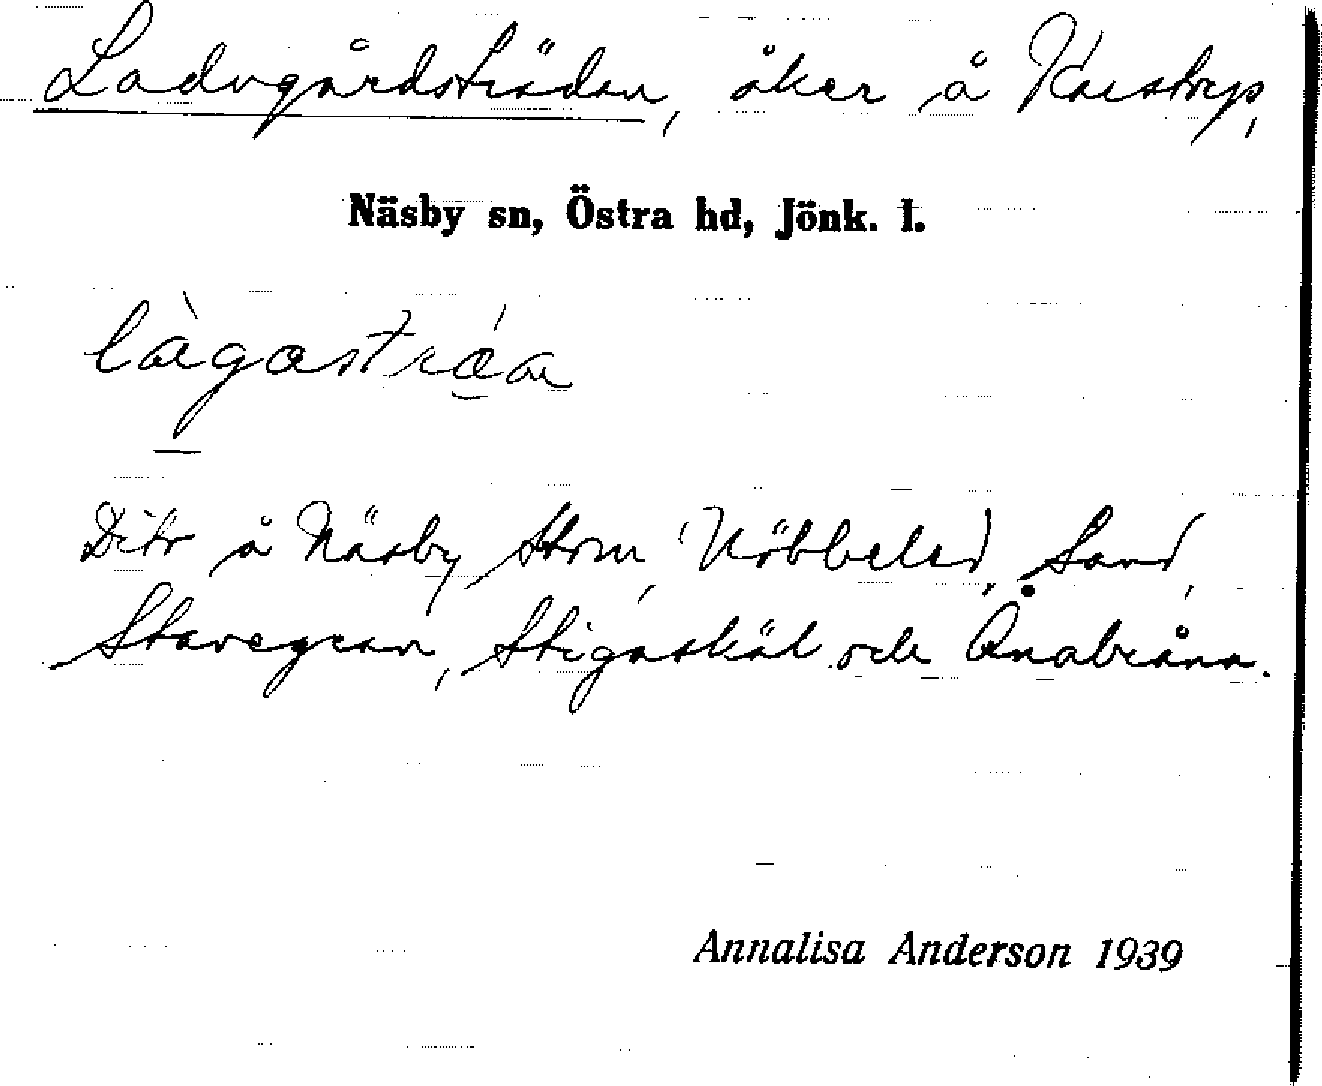 Ladugårdsträdan, åker å Karstorp,
Näsby sn, Östra hd, Jönk. l.
làgastráa
Dito å Näsby Storm, Nöbbeled, Sand,
Stavegran, Stigaskäl och Ånabråna.
Annalisa Anderson 1939